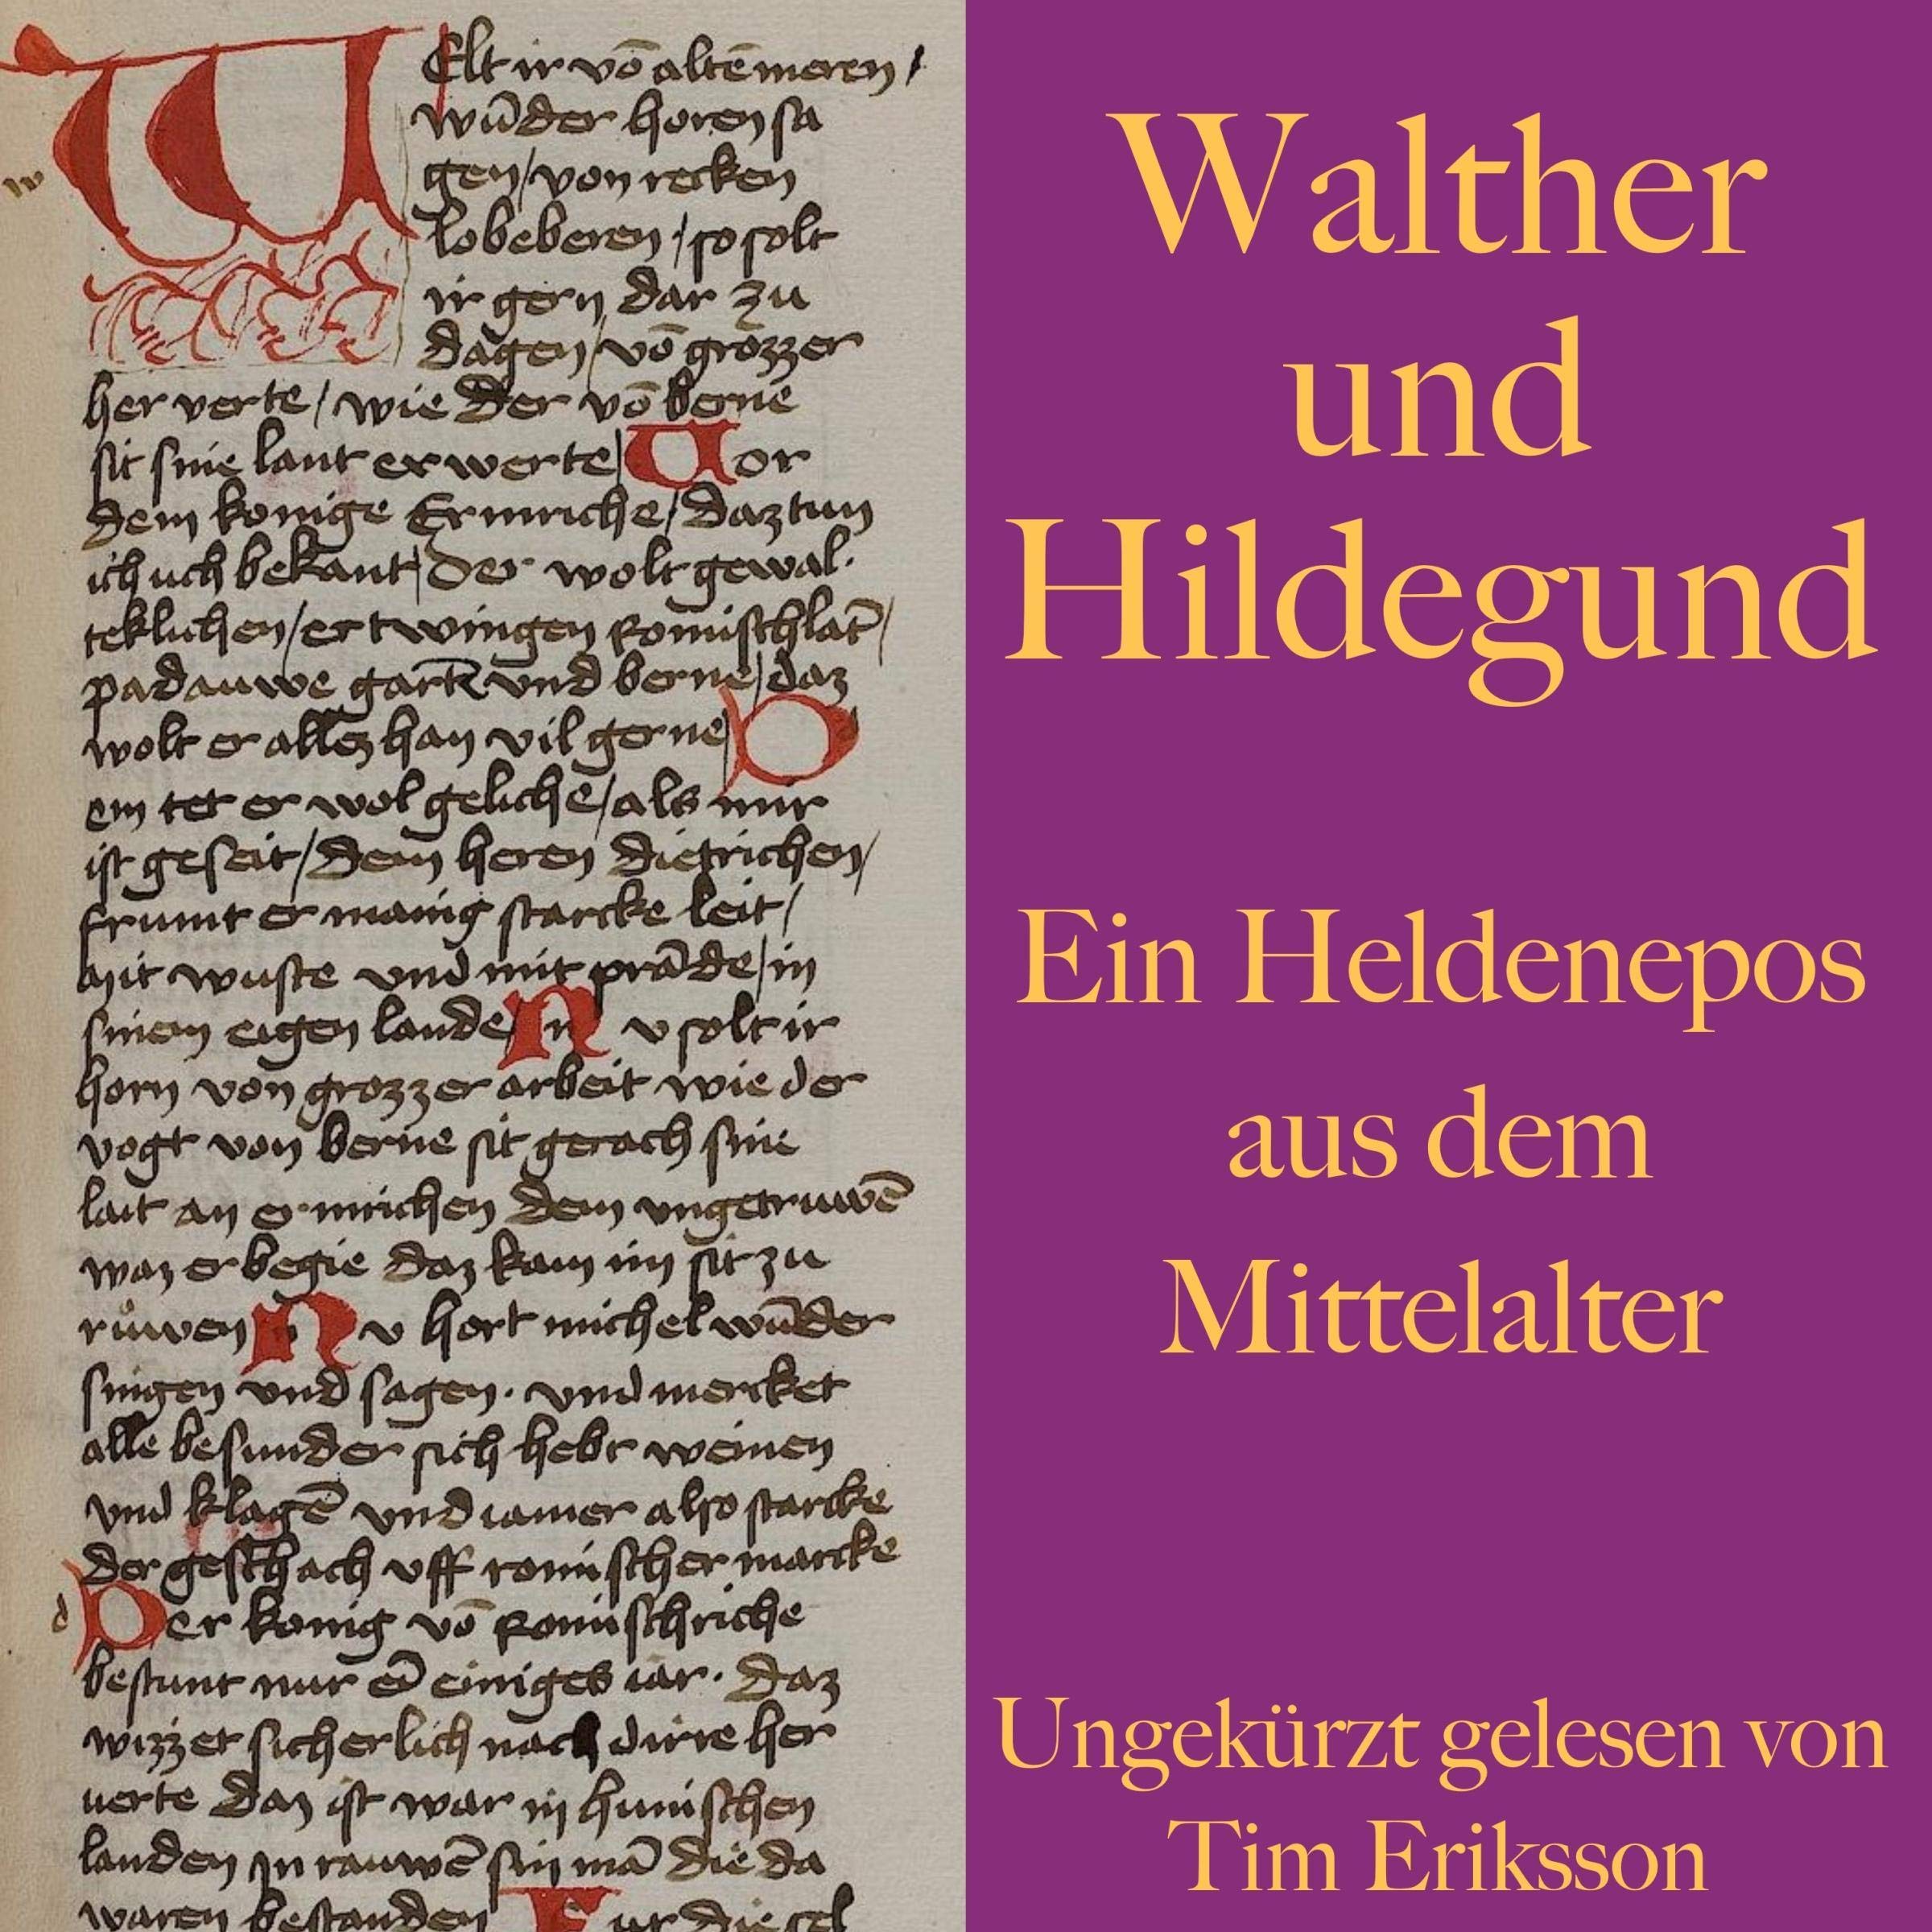 w
WElt ir vō altē meren /
wūder horen sa
gen / von recken
lobeberen / so solt
ir gern dar zu
dagen / vō grozzer
her verte / wie der vō berne
sit sine lant er werte / Vor
dem konige Ermriche / daz tun
ich uch bekant / Der wolt gewal·
teklichen / ertwingen Romisch lāt /
padauwe gartē vnd berne / daz
wolt er allez han vil gerne / D
em tet er wol geliche / als mir
ist geseit / dem heren dietrichen /
frumt er manig starcke leit /
mit wuste vnd mit prāde / in
sinem eigen lande / Nv solt ir
horn von grozzer arbeit wie der
vogt von berne sit gerach sine
lait an ermrichen dem vngetruwē
waz er begie daz kam im sit zu
ruwen Nv hort michel wūder
singen vnd sagen · vnd mercket
alle besunder sich hebt weinen
vnd klagē vnd iamer also starcke
der geschach vff romischer marcke
d
Der konig vō Romischriche
bestunt nur ei einiges iar · Daz
wizzet sicherlich nach dirre her
uerte daz ist war in hunischen
landen In rauwē sin mā die da
waren bestanden Fur die sel
Walther
und
Hildegund
Ein Heldenepos
aus dem
Mittelalter
Ungekürzt gelesen von
Tim Eriksson